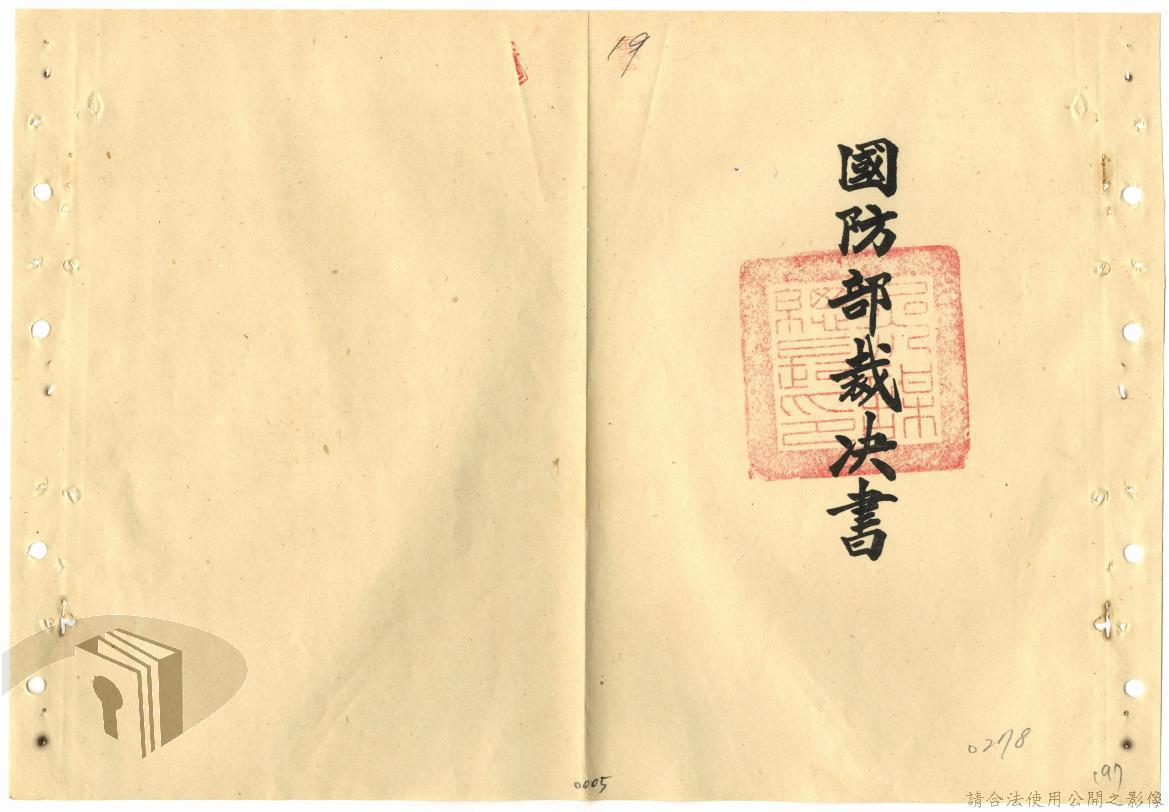 19
國防部裁決書
0278
0005
197
請合法使用公開之影像